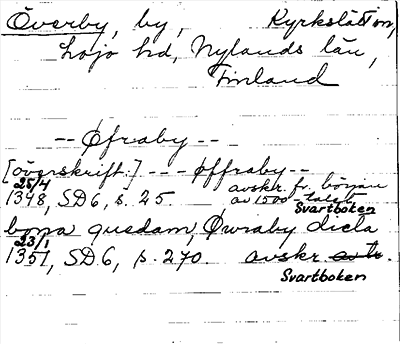 Överby, by, Kyrkslätt sn,
Lojo hd, Nylands län,
Finland
-- Øfraby --
[överskrift:] --- øffraby --
25/4 avskr. fr. början
1348, SD6, s. 25. av 1500-talet
Svartboken
bona quedam, Øwraby dicta
23/1
1351, SD6, s. 270. avskr.
Svartboken